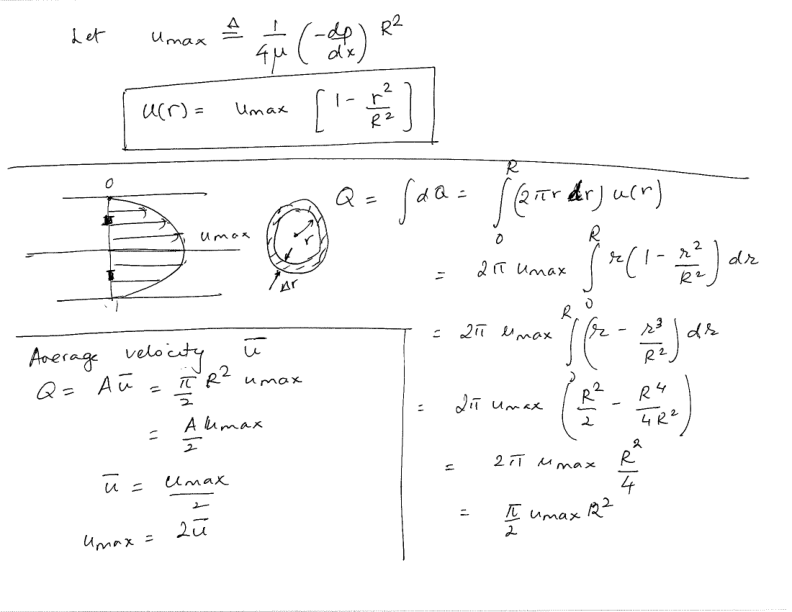 Let umax ≜ 1/4μ (-dp/dx) R²
u(r) = umax [1 - r²/R²]
0
umax
r
Δr
Q = ∫dQ = ∫₀ᴿ (2πr dr) u(r)
= 2π umax ∫₀ᴿ r(1 - r²/R²) dr
= 2π umax ∫₀ᴿ (r - r³/R²) dr
= 2π umax (R²/2 - R⁴/4R²)
= 2π umax R²/4
= π/2 umax R²
Average velocity ū
Q = Aū = π/2 R² umax
= A/2 umax
ū = umax/2
umax = 2ū